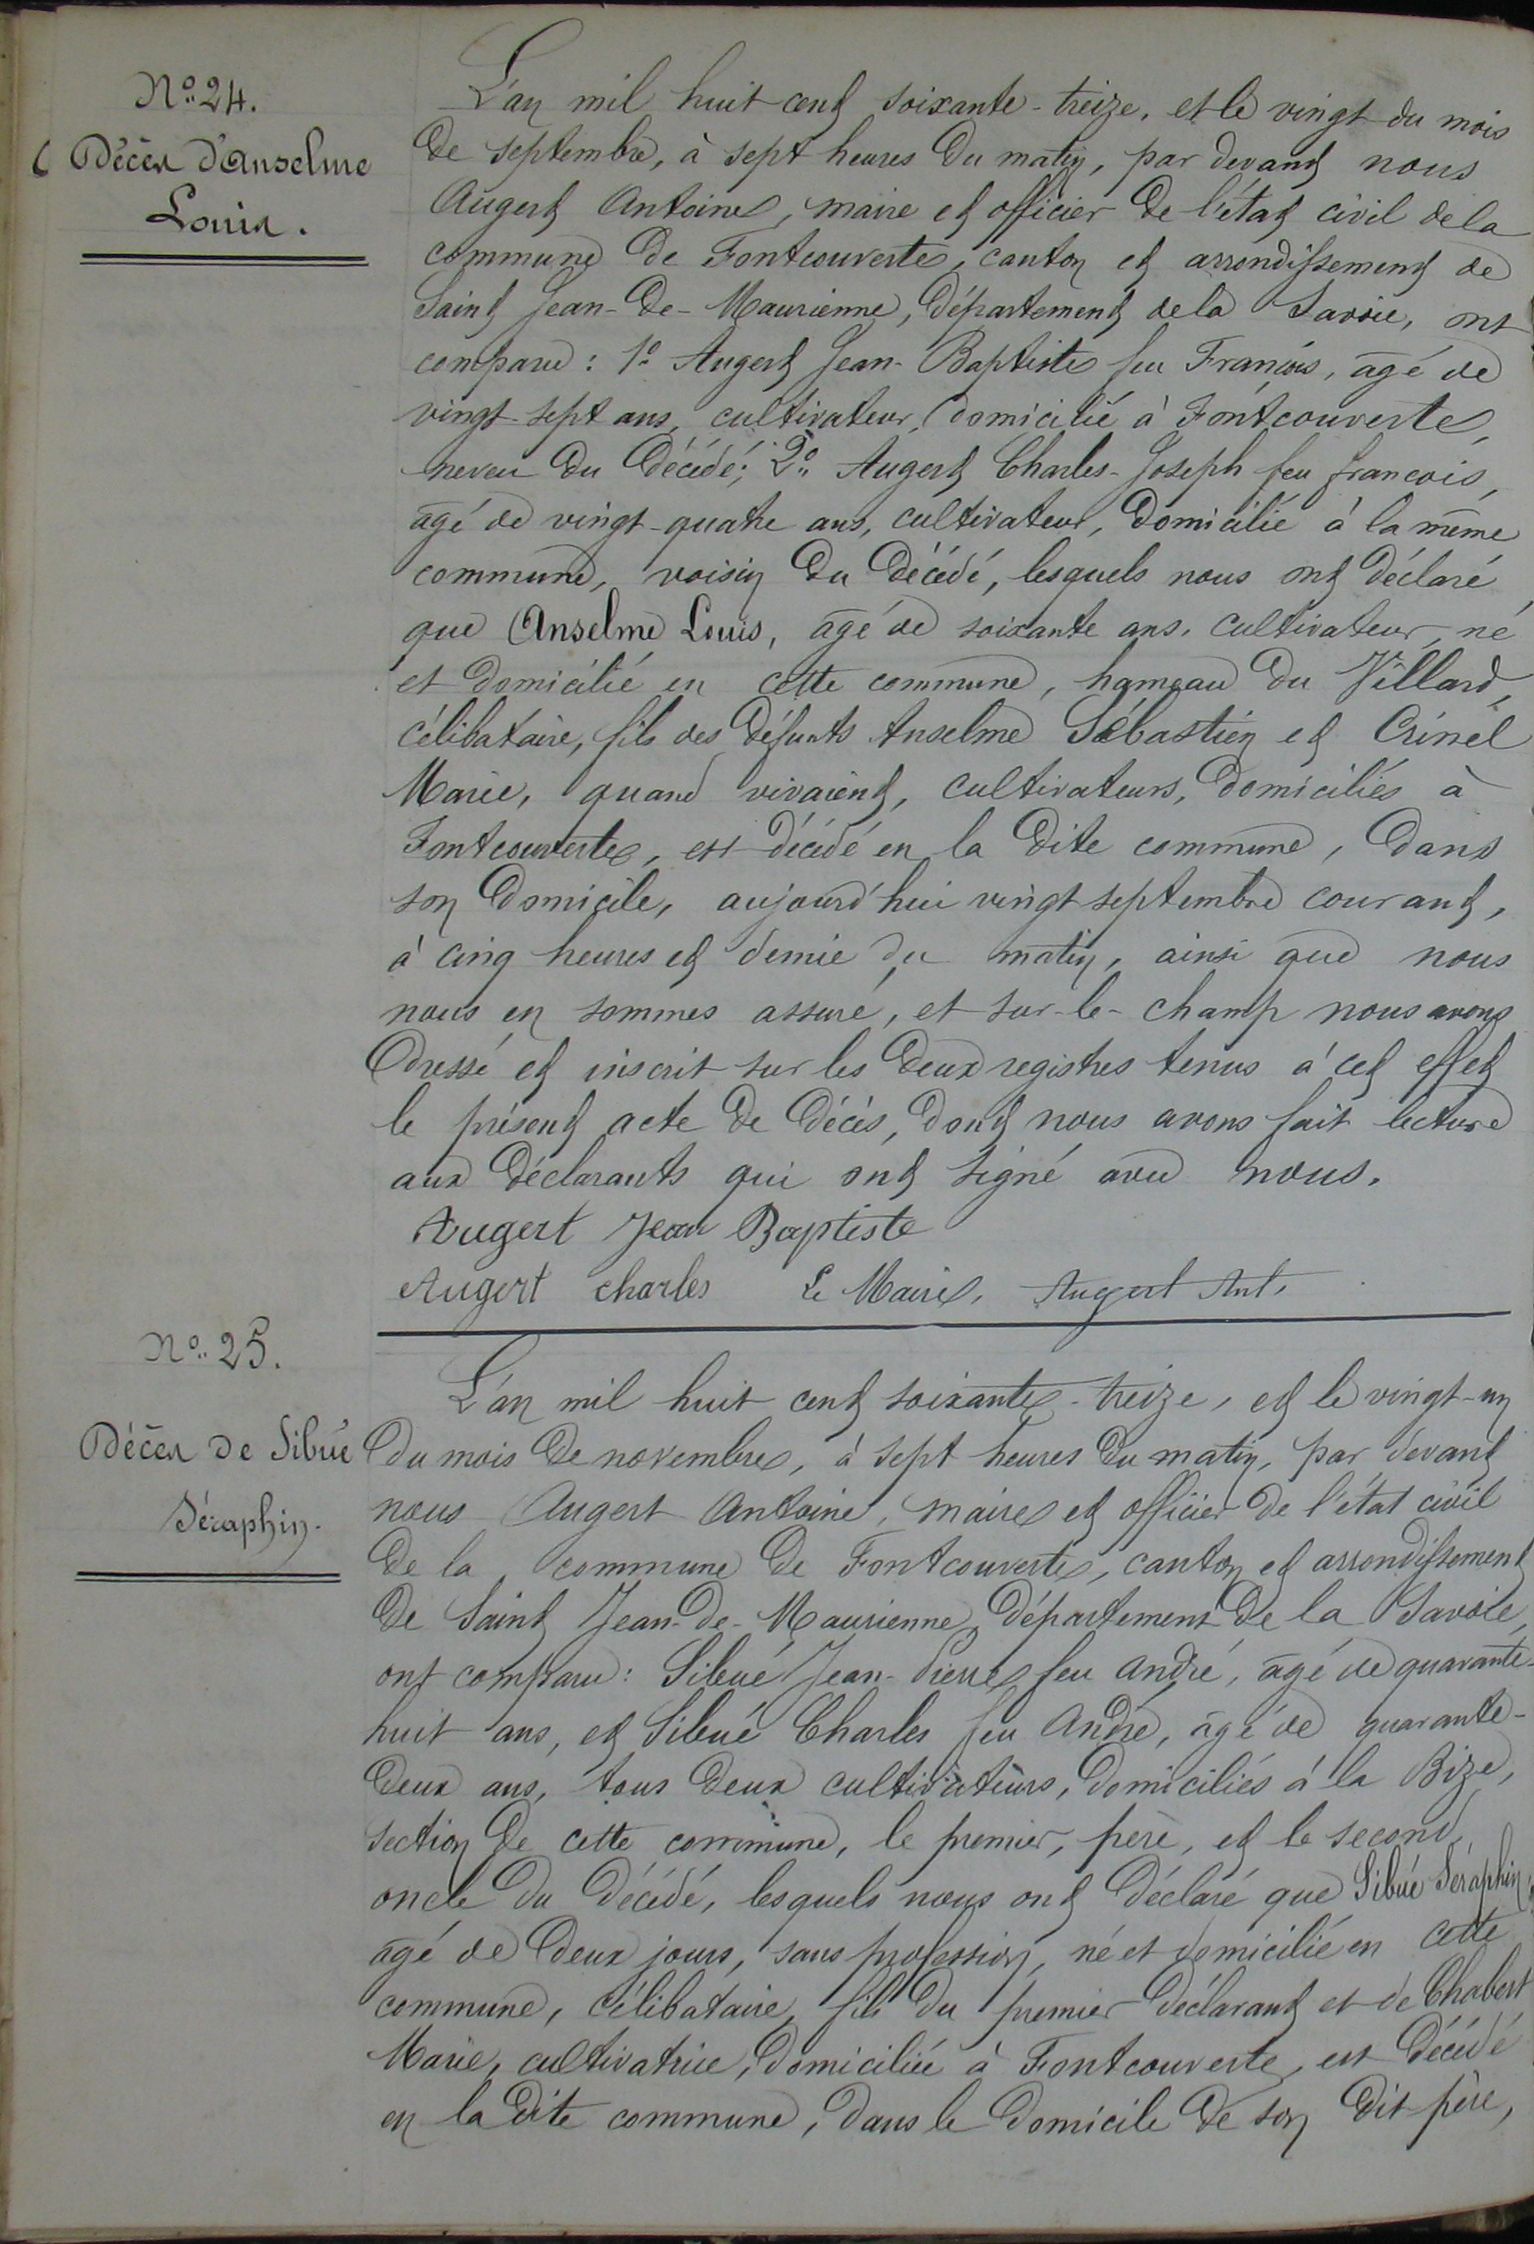 N° 24.
Décès d'Anselme
Louis.
L'an mil huit cent soixante-treize, et le vingt du mois
de septembre, à sept heures du matin, par devant nous
Augert Antoine, maire et officier de l'état civil de la
commune de Fontcouverte, canton et arrondissement de
Saint Jean-de-Maurienne, département de la Savoie, ont
comparu : 1° Augert Jean-Baptiste feu François, âgé de
vingt-sept ans, cultivateur, domicilié à Fontcouverte,
neveu du décédé; 2° Augert Charles-Joseph feu françois,
âgé de vingt-quatre ans, cultivateur, domicilié à la même
commune, voisin du décédé, lesquels nous ont déclaré
que Anselme Louis, âgé de soixante ans, cultivateur, né
et domicilié en cette commune, hameau du Villard,
célibataire, fils des défunts Anselme Sébastien et Crinel
Marie, quand vivaient, cultivateurs, domiciliés à
Fontcouverte, est décédé en la dite commune, dans
son domicile, aujourd'hui vingt septembre courant,
à cinq heures et demie du matin, ainsi que nous
nous en sommes assuré, et sur-le-champ nous avons
dressé et inscrit sur les deux registres tenus à cet effet
le présent acte de décès, dont nous avons fait lecture
aux déclarants qui ont signé avec nous.
Augert Jean Baptiste
Augert charles Le Maire, Augert Ant.
N° 25.
Décès de Sibué
Séraphin.
L'an mil huit cent soixante-treize, et le vingt-un
du mois de novembre, à sept heures du matin, par devant
nous Augert Antoine, maire et officier de l'état civil
de la commune de Fontcouverte, canton et arrondissement
de Saint Jean-de-Maurienne, département de la Savoie,
ont comparu : Sibué Jean-Pierre feu André, âgé de quarante-
huit ans, et Sibué Charles feu André, âgé de quarante-
deux ans, tous deux cultivateurs, domiciliés à la Bize,
section de cette commune, le premier, père, et le second,
oncle du décédé, lesquels nous ont déclaré que Sibué Séraphin,
âgé de deux jours, sans profession, né et domicilié en cette
commune, célibataire, fils du premier déclarant et de Chabert
Marie, cultivatrice, domiciliée à Fontcouverte, est décédé
en la dite commune, dans le domicile de son dit père,